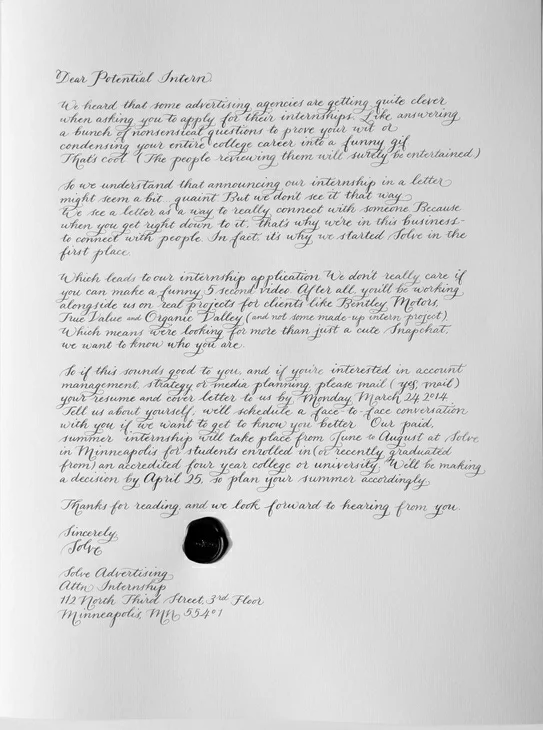 Dear Potential Intern
We heard that some advertising agencies are getting quite clever
when asking you to apply for their internships. Like answering
a bunch of nonsensical questions to prove your wit or
condensing your entire college career into a funny gif
That's cool (The people reviewing them will surely be entertained)
So we understand that announcing our internship in a letter
might seem a bit quaint But we don't see it that way
We see a letter as a way to really connect with someone Because
when you get right down to it, that's why we're in this business-
to connect with people. In fact, it's why we started Solve in the
first place.
Which leads to our internship application We don't really care if
you can make a funny 5 second video. After all, you'll be working
alongside us on real projects for clients like Bentley Motors,
True Value and Organic Valley (and not some made-up intern project)
Which means we're looking for more than just a cute Snapchat,
we want to know who you are.
So if this sounds good to you, and if you're interested in account
management, strategy or media planning, please mail (yes, mail)
your resume and cover letter to us by Monday, March 24 2014.
Tell us about yourself, we'll schedule a face-to-face conversation
with you if we want to get to know you better Our paid,
summer internship will take place from June to August at Solve
in Minneapolis for students enrolled in (or recently graduated
from) an accredited four year college or university. We'll be making
a decision by April 25, so plan your summer accordingly
Thanks for reading, and we look forward to hearing from you
Sincerely,
Solve
Solve Advertising
Attn Internship
112 North Third Street, 3rd Floor
Minneapolis, MN 55401